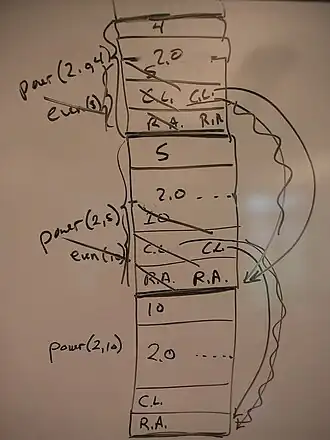 4
2.0
5
power(2.0,4)
C.L. C.L.
even(5)
R.A. R.A
5
2.0 ....
10
power(2,5)
C.L. C.L.
even(10)
R.A. R.A.
10
power(2,10)
2.0 .....
C.L.
R.A.